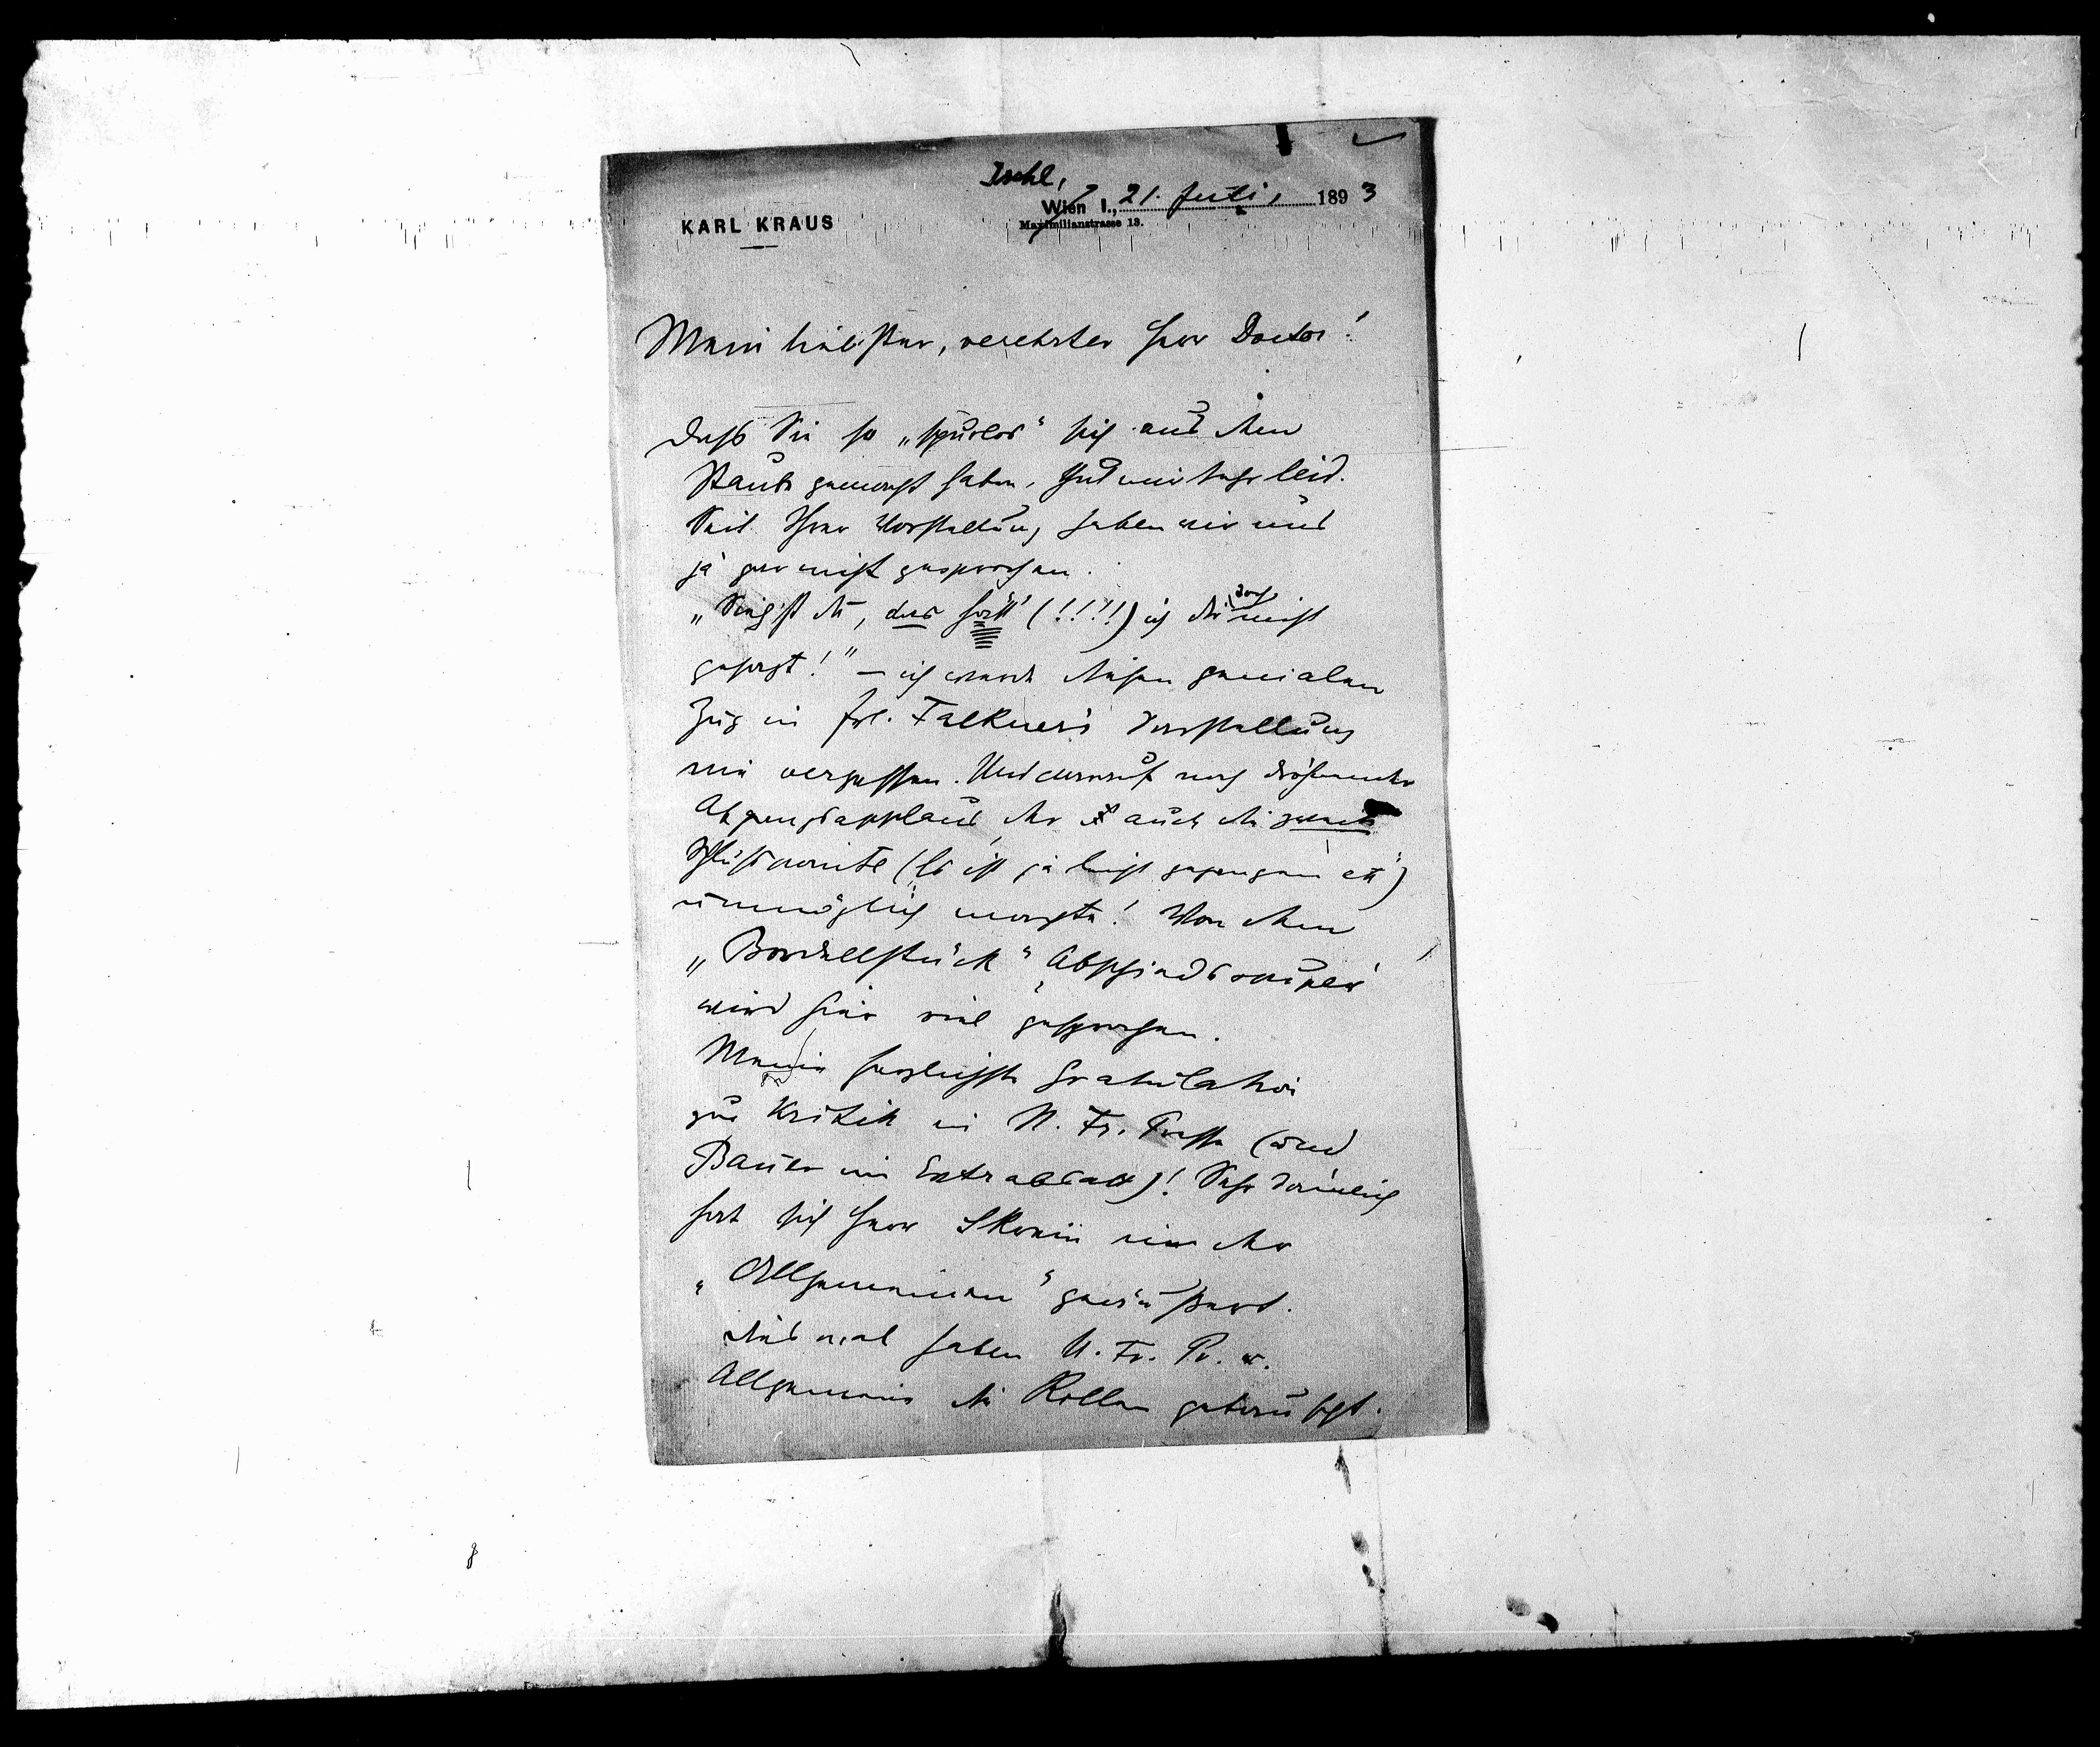 Ischl,
Wien I., 21. Juli, 1893
KARL KRAUS
Maximilianstrasse 13.
Mein liebster, verehrter Herr Doctor!
Dass Sie so „spurlos“ sich aus dem
Staube gemacht haben, thut mir sehr leid.
Seit Ihrer Vorstellung haben wir uns
ja gar nicht gesprochen.
„Siehst du, das hätt' (!!!!) ich dir doch nicht
gesagt!“ – ich werde diesen genialen
Zug in Frl. Falkner's Darstellung
nie vergessen. Und darauf noch dröhnender
Abgangsapplaus, der auch die zweite
Schlußpointe („Es ist ja leicht gegangen etc“)
unmöglich machte! Von dem
„Bordellstück“ „Abschiedssouper“
wird hier viel gesprochen.
Meine herzlichste Gratulation
zur Kritik in N. Fr. Presse (und
Bauer im Extrablatt)! Sehr dämlich
hat sich Herr Skrein in der
„Allgemeinen“ geäußert.
Diesmal haben N. Fr. Pr. u.
Allgemeine die Rollen getauscht.